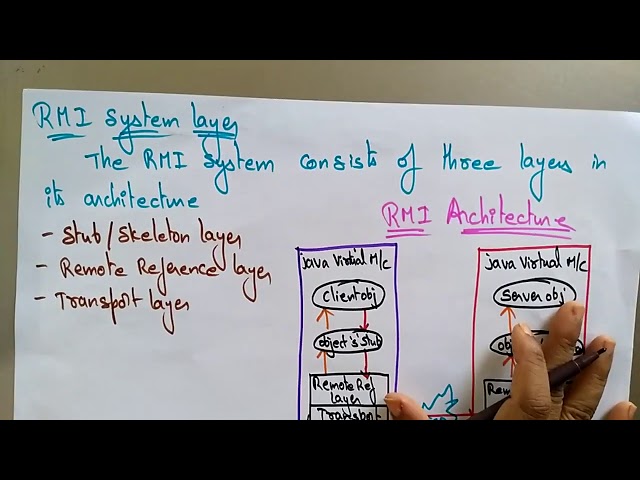 RMI System layer
The RMI System consists of three layers in
its architecture
- Stub/Skeleton layer
- Remote Reference layer
- Transport layer
RMI Architecture
java Virtual M/C
Client obj
object's Stub
Remote Ref
layer
Transport
java Virtual M/C
Server obj